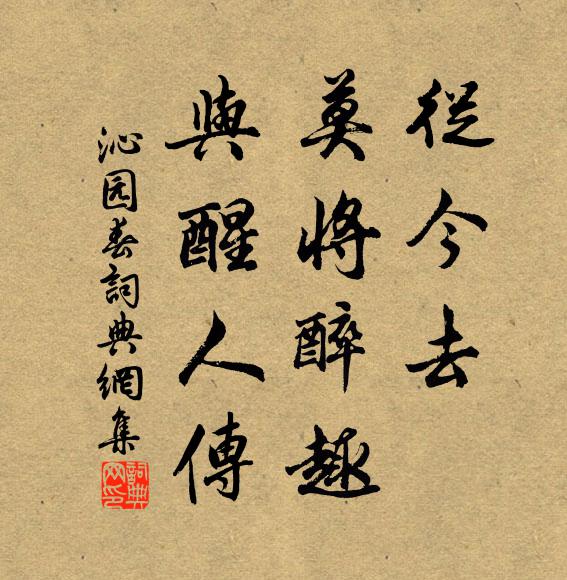 從今去
莫將醉趣
與醒人傳
沁园春詞典網集
詞典网印